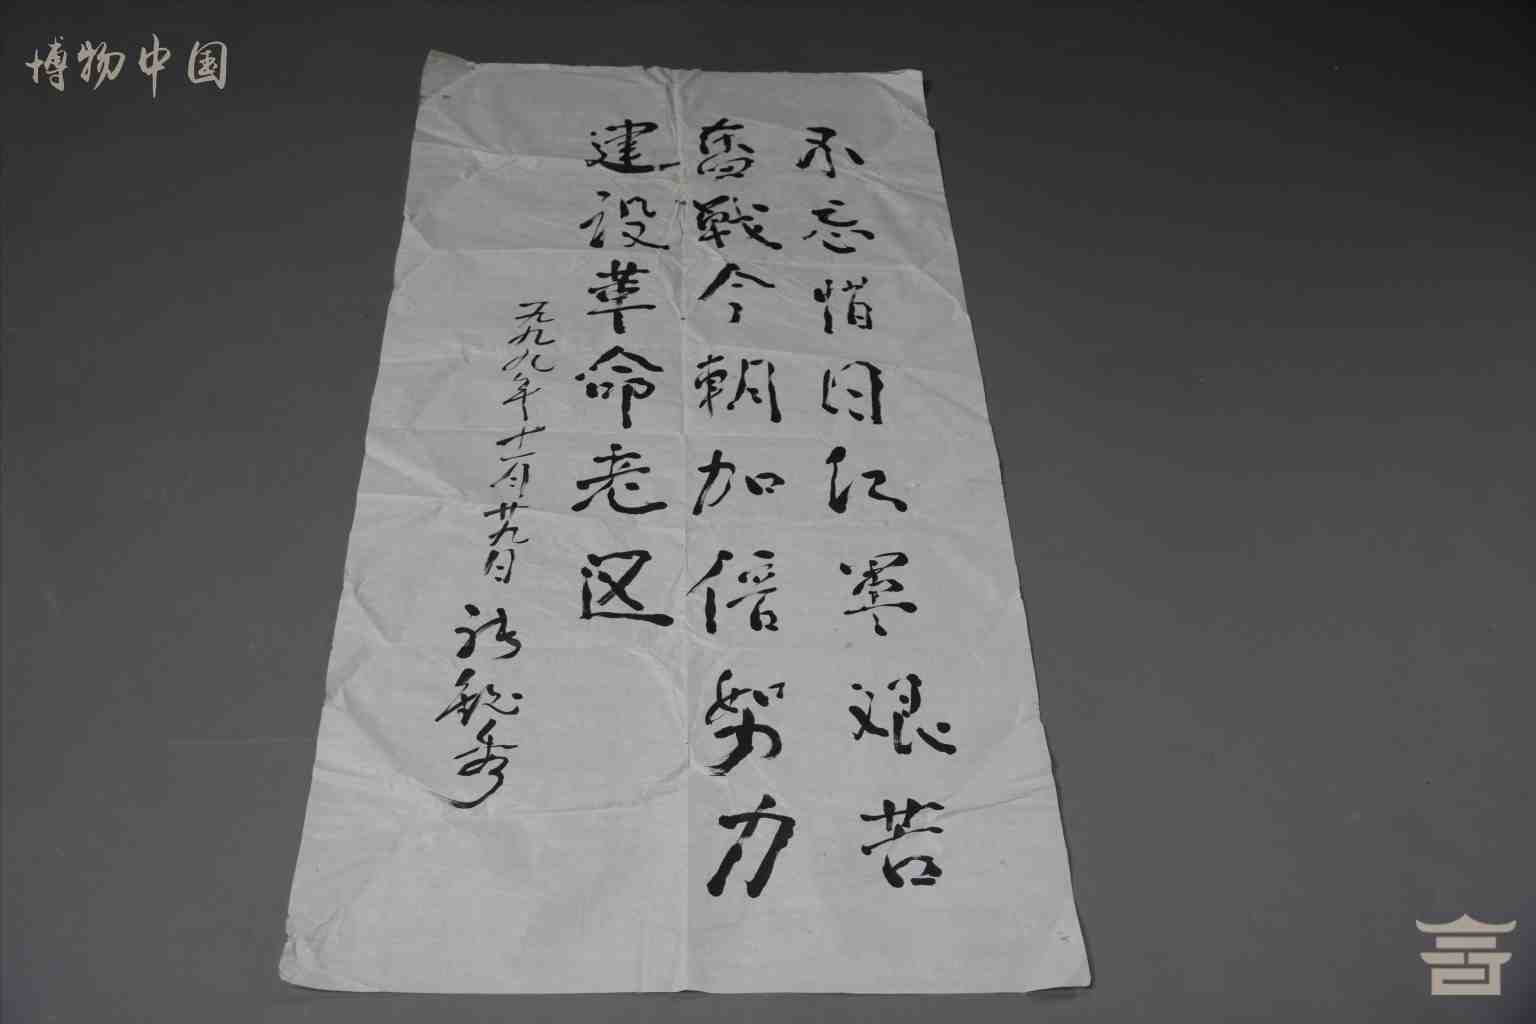 博物中国
不忘惜日红軍艰苦
奋戰今朝加倍努力
建设革命老区
一九九九年十一月廿九日